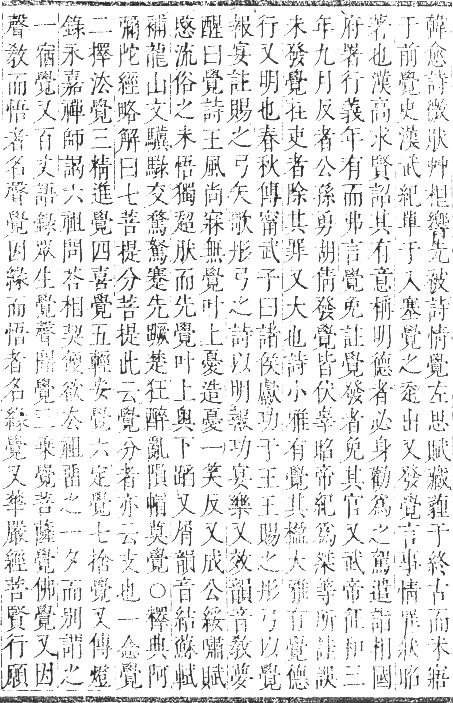 韓愈詩微狀艸相響先被詩情覺左思賦藏薶于終古而未寤
于前覺史漢武紀單于入塞覺之㢟出又發覺言事情罪狀昭
著也漢高求賢詔其有意稱明德者必身勸爲之駕遣詣相國
府署行義年有而弗言覺免註覺發者免其官又武帝征和三
年九月反者公孫勇胡倩發覺皆伏辜昭帝紀爲桀等所詿誤
未發覺在吏者除其罪又大也詩小雅有覺其楹大雅有覺德
行又明也春秋傳甯武子曰諸侯獻功于王王賜之彤弓以覺
報宴註賜之弓矢歌彤弓之詩以明報功宴樂又效韻音敎夢
醒曰覺詩王風尚寐無覺叶上憂造憂一笑反又成公綏嘯賦
愍流俗之未悟獨超肰而先覺叶上奥下蹈又屑韻音結蘇軾
補龍山文驥騄交驁駑蹇先蹶楚狂醉亂隕帽莫覺○釋典阿
彌陀經略解曰七菩提分菩提此云覺分者亦云支也一念覺
二擇法覺三精進覺四喜覺五輕安覺六定覺七捨覺又傳燈
錄永嘉禪師謁六祖問答相契便欲去祖畱之一夕而别謂之
一宿覺又百丈語錄眾生覺聲聞覺二乗覺菩薩覺佛覺又因
聲敎而悟者名聲覺因緣而悟者名緣覺又華嚴經菩賢行願